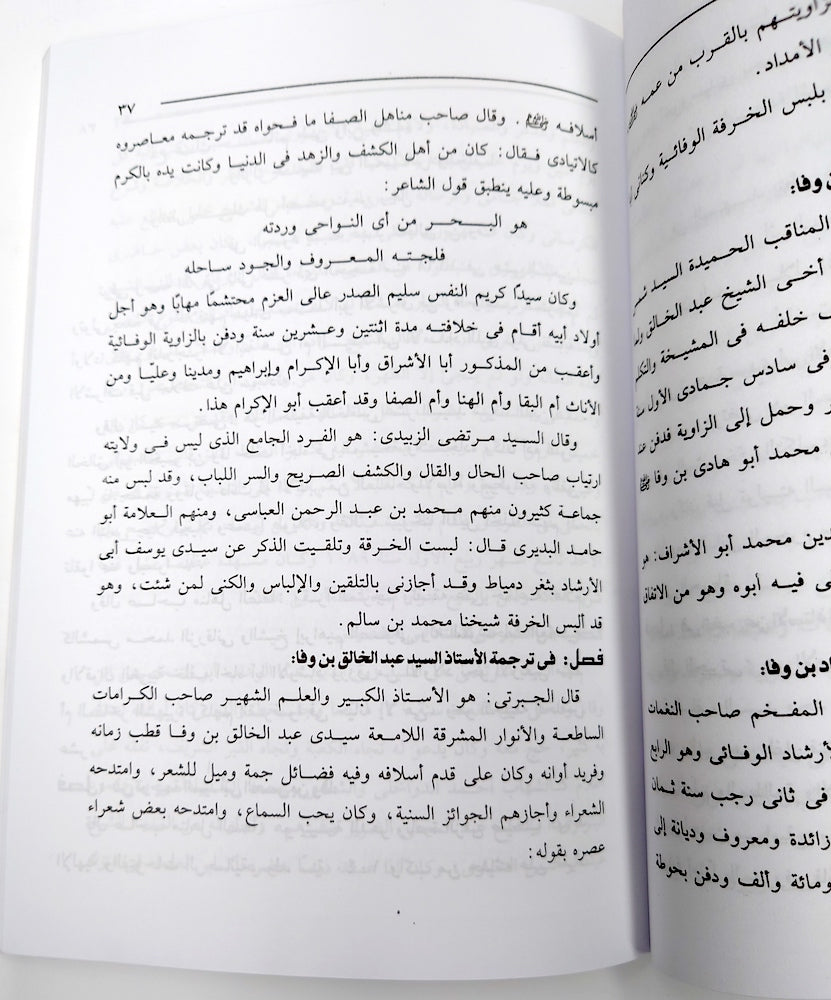 زاويتهم بالقرب من عمه
الأمداد.
بلبس الخرقة الوفائية وكنانى
ن وفا:
المناقب الحميدة السيد شمس
أخى الشيخ عبد الخالق
خلفه فى المشيخة والتكلم
فى سادس جمادى الأول سنة
وحمل إلى الزاوية فدفن عند
محمد أبو هادى بن وفا
دين محمد أبو الأشراف: هو
ى فيه أبوه وهو من الاتفاق
اد بن وفا:
المفخم صاحب النغمات
لأرشاد الوفائى وهو الرابع
فى ثانى رجب سنة ثمان
زائدة ومعروف وديانة إلى
ومائة وألف ودفن بحوطة
٣٧
أسلافه ﷺ. وقال صاحب مناهل الصفا ما فحواه قد ترجمه معاصروه
كالاتيادى فقال: كان من أهل الكشف والزهد فى الدنيا وكانت يده بالكرم
مبسوطة وعليه ينطبق قول الشاعر:
هو البحر من أى النواحى وردته
فلجته المعروف والجود ساحله
وكان سيدًا كريم النفس سليم الصدر عالى العزم محتشمًا مهابًا وهو أجل
أولاد أبيه أقام فى خلافته مدة اثنتين وعشرين سنة ودفن بالزاوية الوفائية
وأعقب من المذكور أبا الأشراق وأبا الإكرام وإبراهيم ومدينا وعليًا ومن
الأناث أم البقا وأم الهنا وأم الصفا وقد أعقب أبو الإكرام هذا.
وقال السيد مرتضى الزبيدى: هو الفرد الجامع الذى ليس فى ولايته
ارتياب صاحب الحال والقال والكشف الصريح والسر اللباب، وقد لبس منه
جماعة كثيرون منهم محمد بن عبد الرحمن العباسى، ومنهم العلامة أبو
حامد البديرى قال: لبست الخرقة وتلقيت الذكر عن سيدى يوسف أبى
الأرشاد بثغر دمياط وقد أجازنى بالتلقين والإلباس والكنى لمن شئت، وهو
قد ألبس الخرقة شيخنا محمد بن سالم.
فصل: فى ترجمة الأستاذ السيد عبد الخالق بن وفا:
قال الجبرتى: هو الأستاذ الكبير والعلم الشهير صاحب الكرامات
الساطعة والأنوار المشرقة اللامعة سيدى عبد الخالق بن وفا قطب زمانه
وفريد أوانه وكان على قدم أسلافه وفيه فضائل جمة وميل للشعر، وامتدحه
الشعراء وأجازهم الجوائز السنية، وكان يحب السماع، وامتدحه بعض شعراء
عصره بقوله: